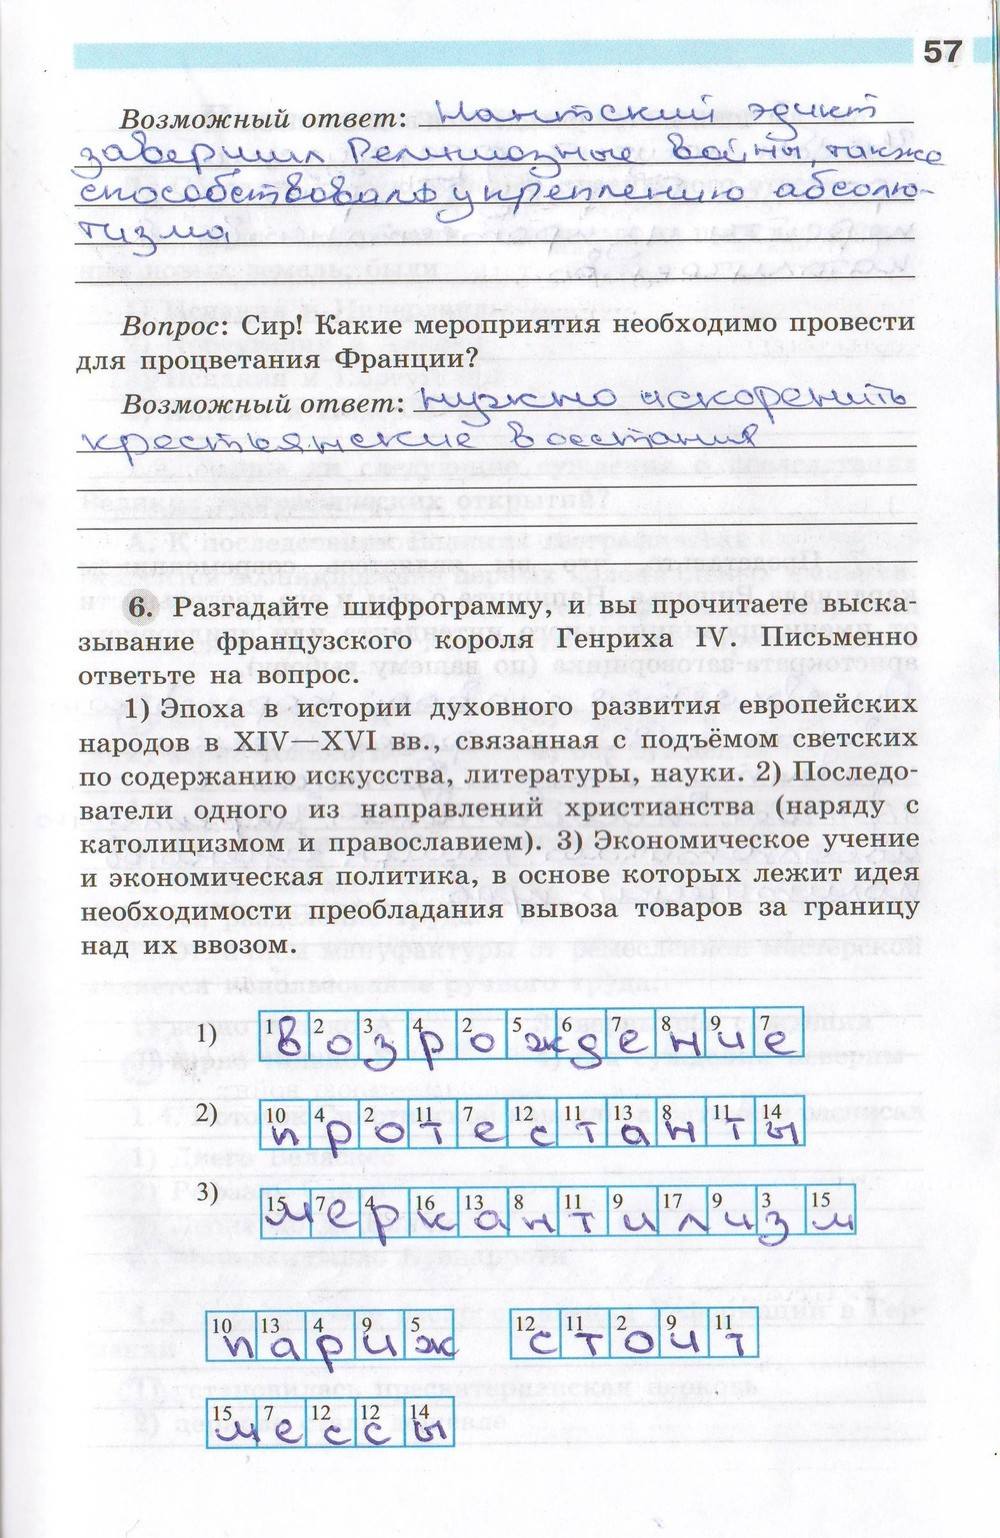 57
Возможный ответ: Нантский эдикт
завершил Религиозные войны, также
способствовал укреплению абсолю-
тизма
Вопрос: Сир! Какие мероприятия необходимо провести
для процветания Франции?
Возможный ответ: нужно искоренить
крестьянские восстания
6. Разгадайте шифрограмму, и вы прочитаете выска-
зывание французского короля Генриха IV. Письменно
ответьте на вопрос.
1) Эпоха в истории духовного развития европейских
народов в XIV—XVI вв., связанная с подъёмом светских
по содержанию искусства, литературы, науки. 2) Последо-
ватели одного из направлений христианства (наряду с
католицизмом и православием). 3) Экономическое учение
и экономическая политика, в основе которых лежит идея
необходимости преобладания вывоза товаров за границу
над их ввозом.
1) 1 2 3 4 2 5 6 7 8 9 7
возрождение
2) 10 4 2 11 7 12 11 13 8 11 14
протестанты
3) 15 7 4 16 13 8 11 9 17 9 3 15
меркантилизм
10 13 4 9 5 12 11 2 9 11
париж стоит
15 7 12 12 14
мессы